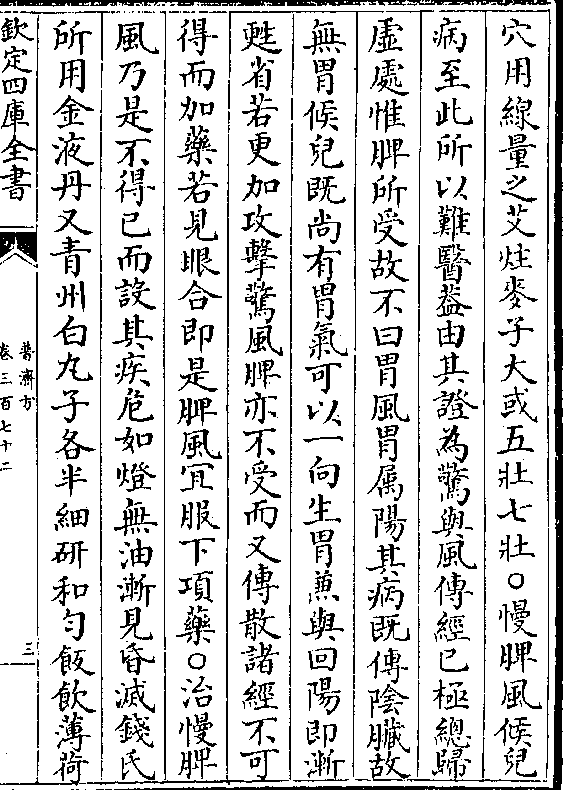 穴用線量之艾炷麥子大或五壯七壯○慢脾風候兒
病至此所以難醫葢由其證為驚與風傳經已極總歸
虛處惟脾所受故不曰胃風胃属陽其病既傳陰臟故
無胃候兒既尚有胃氣可以一向生胃蕪與回陽即漸
甦省若更加攻擊驚風脾亦不受而又傳散諸經不可
得而加藥若見眼合即是脾風冝服下項藥○治慢脾
風乃是不得已而設其疾危如燈無油漸見昏滅錢氏
所用金液丹又青州白丸子各半細研和勻飯飲薄荷
欽定四庫全書
普濟方
卷三百七十二
三